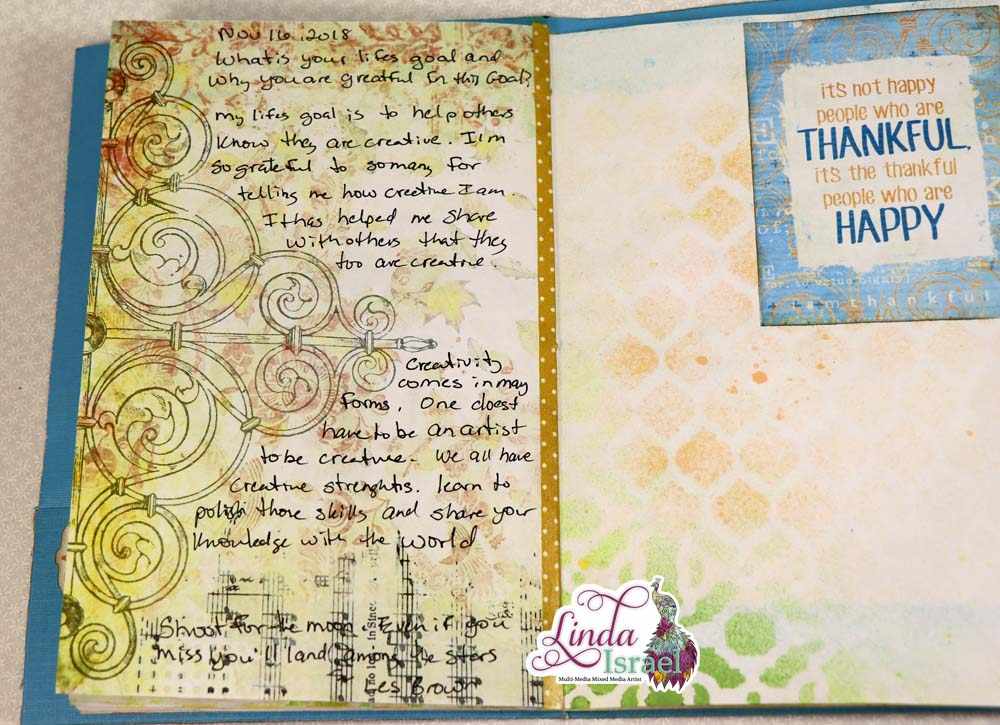 Nov 16, 2018
What is your lifes goal and
why you are greatful for this Goal?
my lifes goal is to help others
know they are creative. I'm
so grateful to so many for
telling me how creative I am.
It has helped me share
with others that they
too are creative.
Creativity
comes in may
forms. One doest
have to be an artist
to be creative. We all have
creative strenghtis. learn to
polish those skills and share your
knowledge with the world
Shoot for the moon. Even if you
miss you'll land among the stars
Les Brown
it's not happy
people who are
THANKFUL,
it's the thankful
people who are
HAPPY
iamthankful
Linda
Israel
Multi-Media Mixed Media Artist